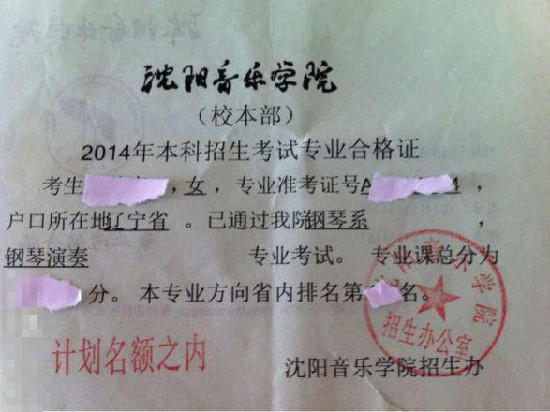 沈阳音乐学院
（校本部）
2014年本科招生考试专业合格证
考生 ，女，专业准考证号A 4，
户口所在地辽宁省。已通过我院钢琴系，
钢琴演奏 专业考试。专业课总分为
分。本专业方向省内排名第 名。
计划名额之内
沈阳音乐学院招生办
沈阳音乐学院
招生办公室